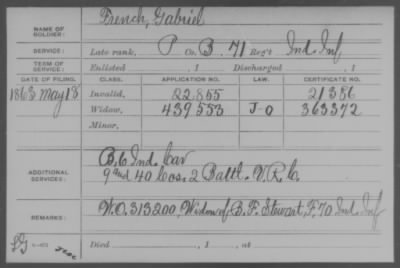 NAME OF SOLDIER: French, Gabriel
SERVICE: Late rank, P Co. B. 71 Reg't Ind. Inf
TERM OF SERVICE: Enlisted , 1 Discharged , 1
DATE OF FILING. CLASS. APPLICATION NO. LAW. CERTIFICATE NO.
1863 May 18 Invalid, 22,855 21386
Widow, 439553 J-O 363372
Minor,
B. 6 Ind. Cav
ADDITIONAL SERVICES: 9 and 40 Cos. 2 Batt. V. R. C.
REMARKS: W.O. 313200, Widow of B. F. Stewart, F, 70 Ind. Inf
Died , 1 , at